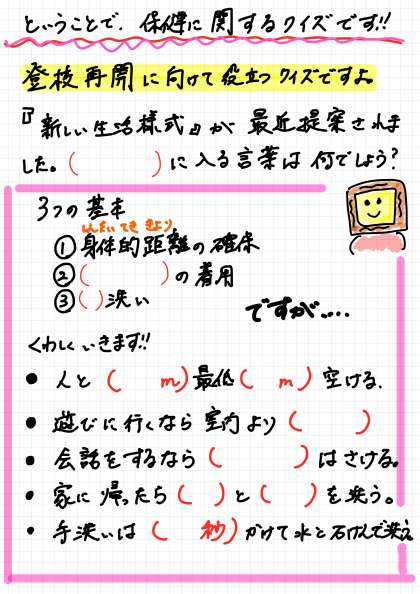 ということで、保健に関するクイズです!!
登校再開に向けて役立つクイズですよ
『新しい生活様式』が最近提案されま
した。(　　　)に入る言葉は何でしょう?
3つの基本
しんたいてき きょり
①身体的距離の確保
②(　　　)の着用
③(　)洗い
ですが....
くわしくいきます!!
● 人と(　　m)最低(　m)空ける、
● 遊びに行くなら室内より(　　　)
● 会話をするなら(　　　)はさける。
● 家に帰ったら(　)と(　)を洗う。
● 手洗いは(　秒)かけて水と石けんで洗う